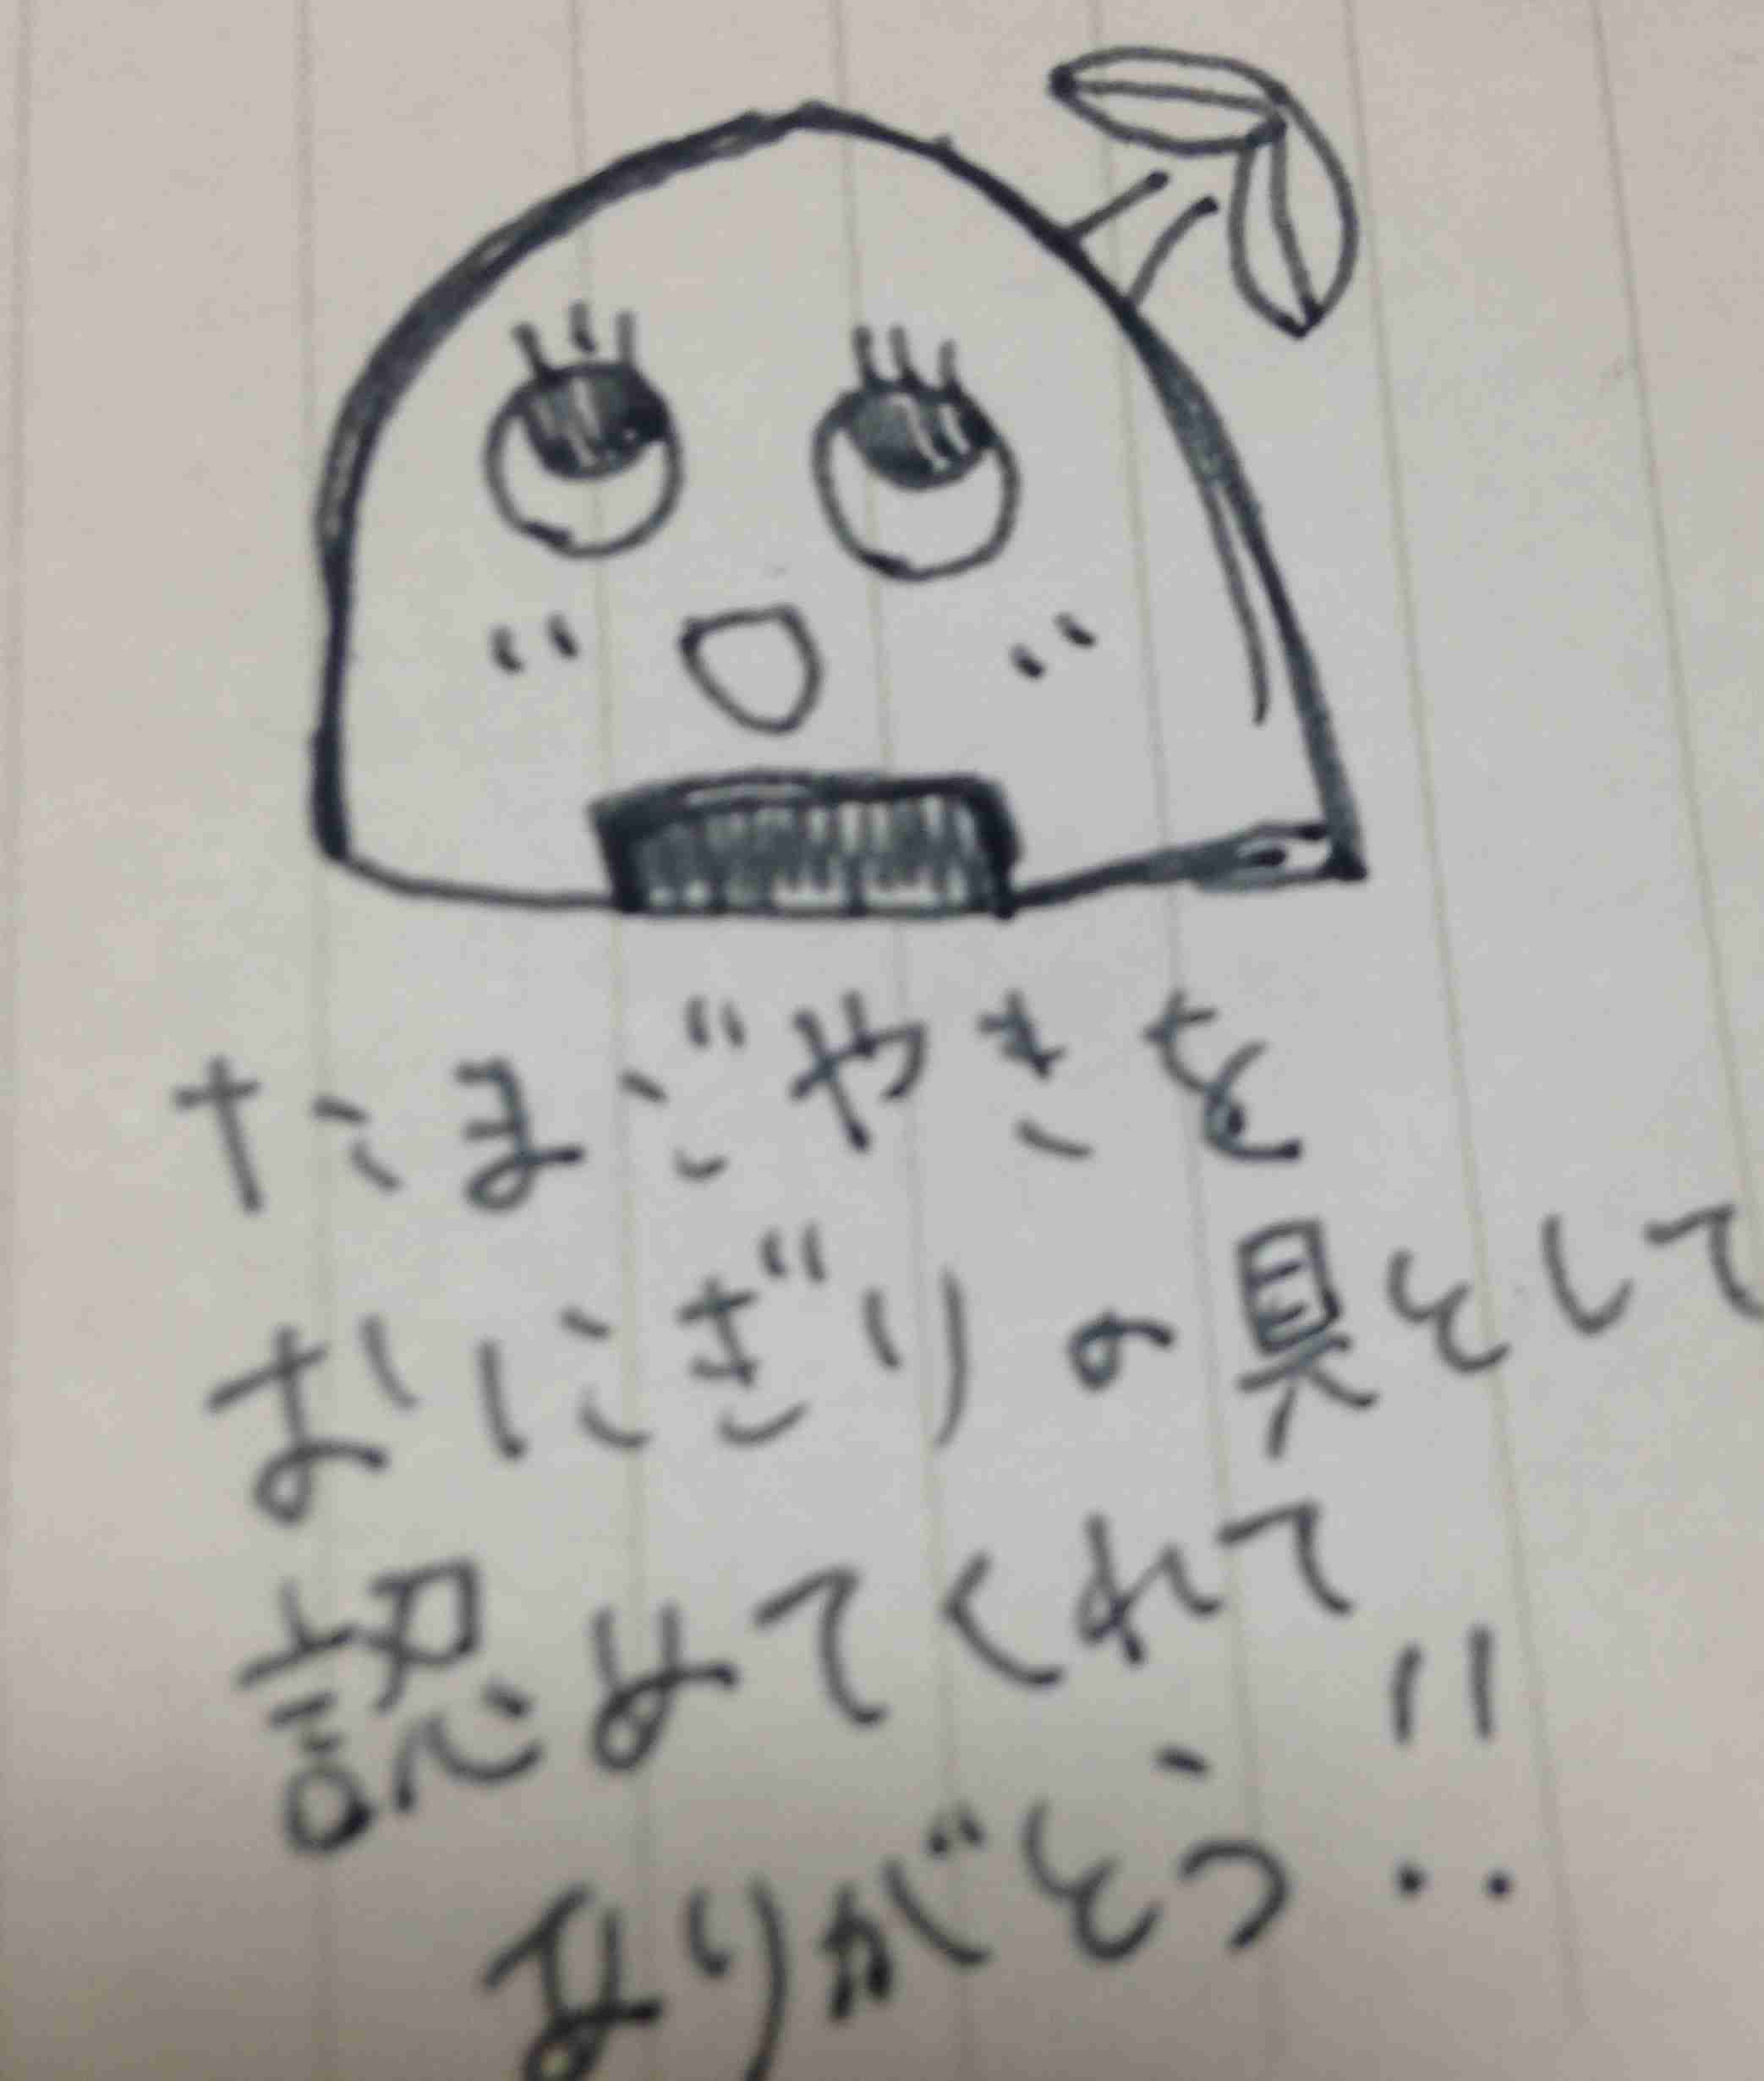 たまごやきを
おにぎりの具として
認めてくれて
ありがとう!!